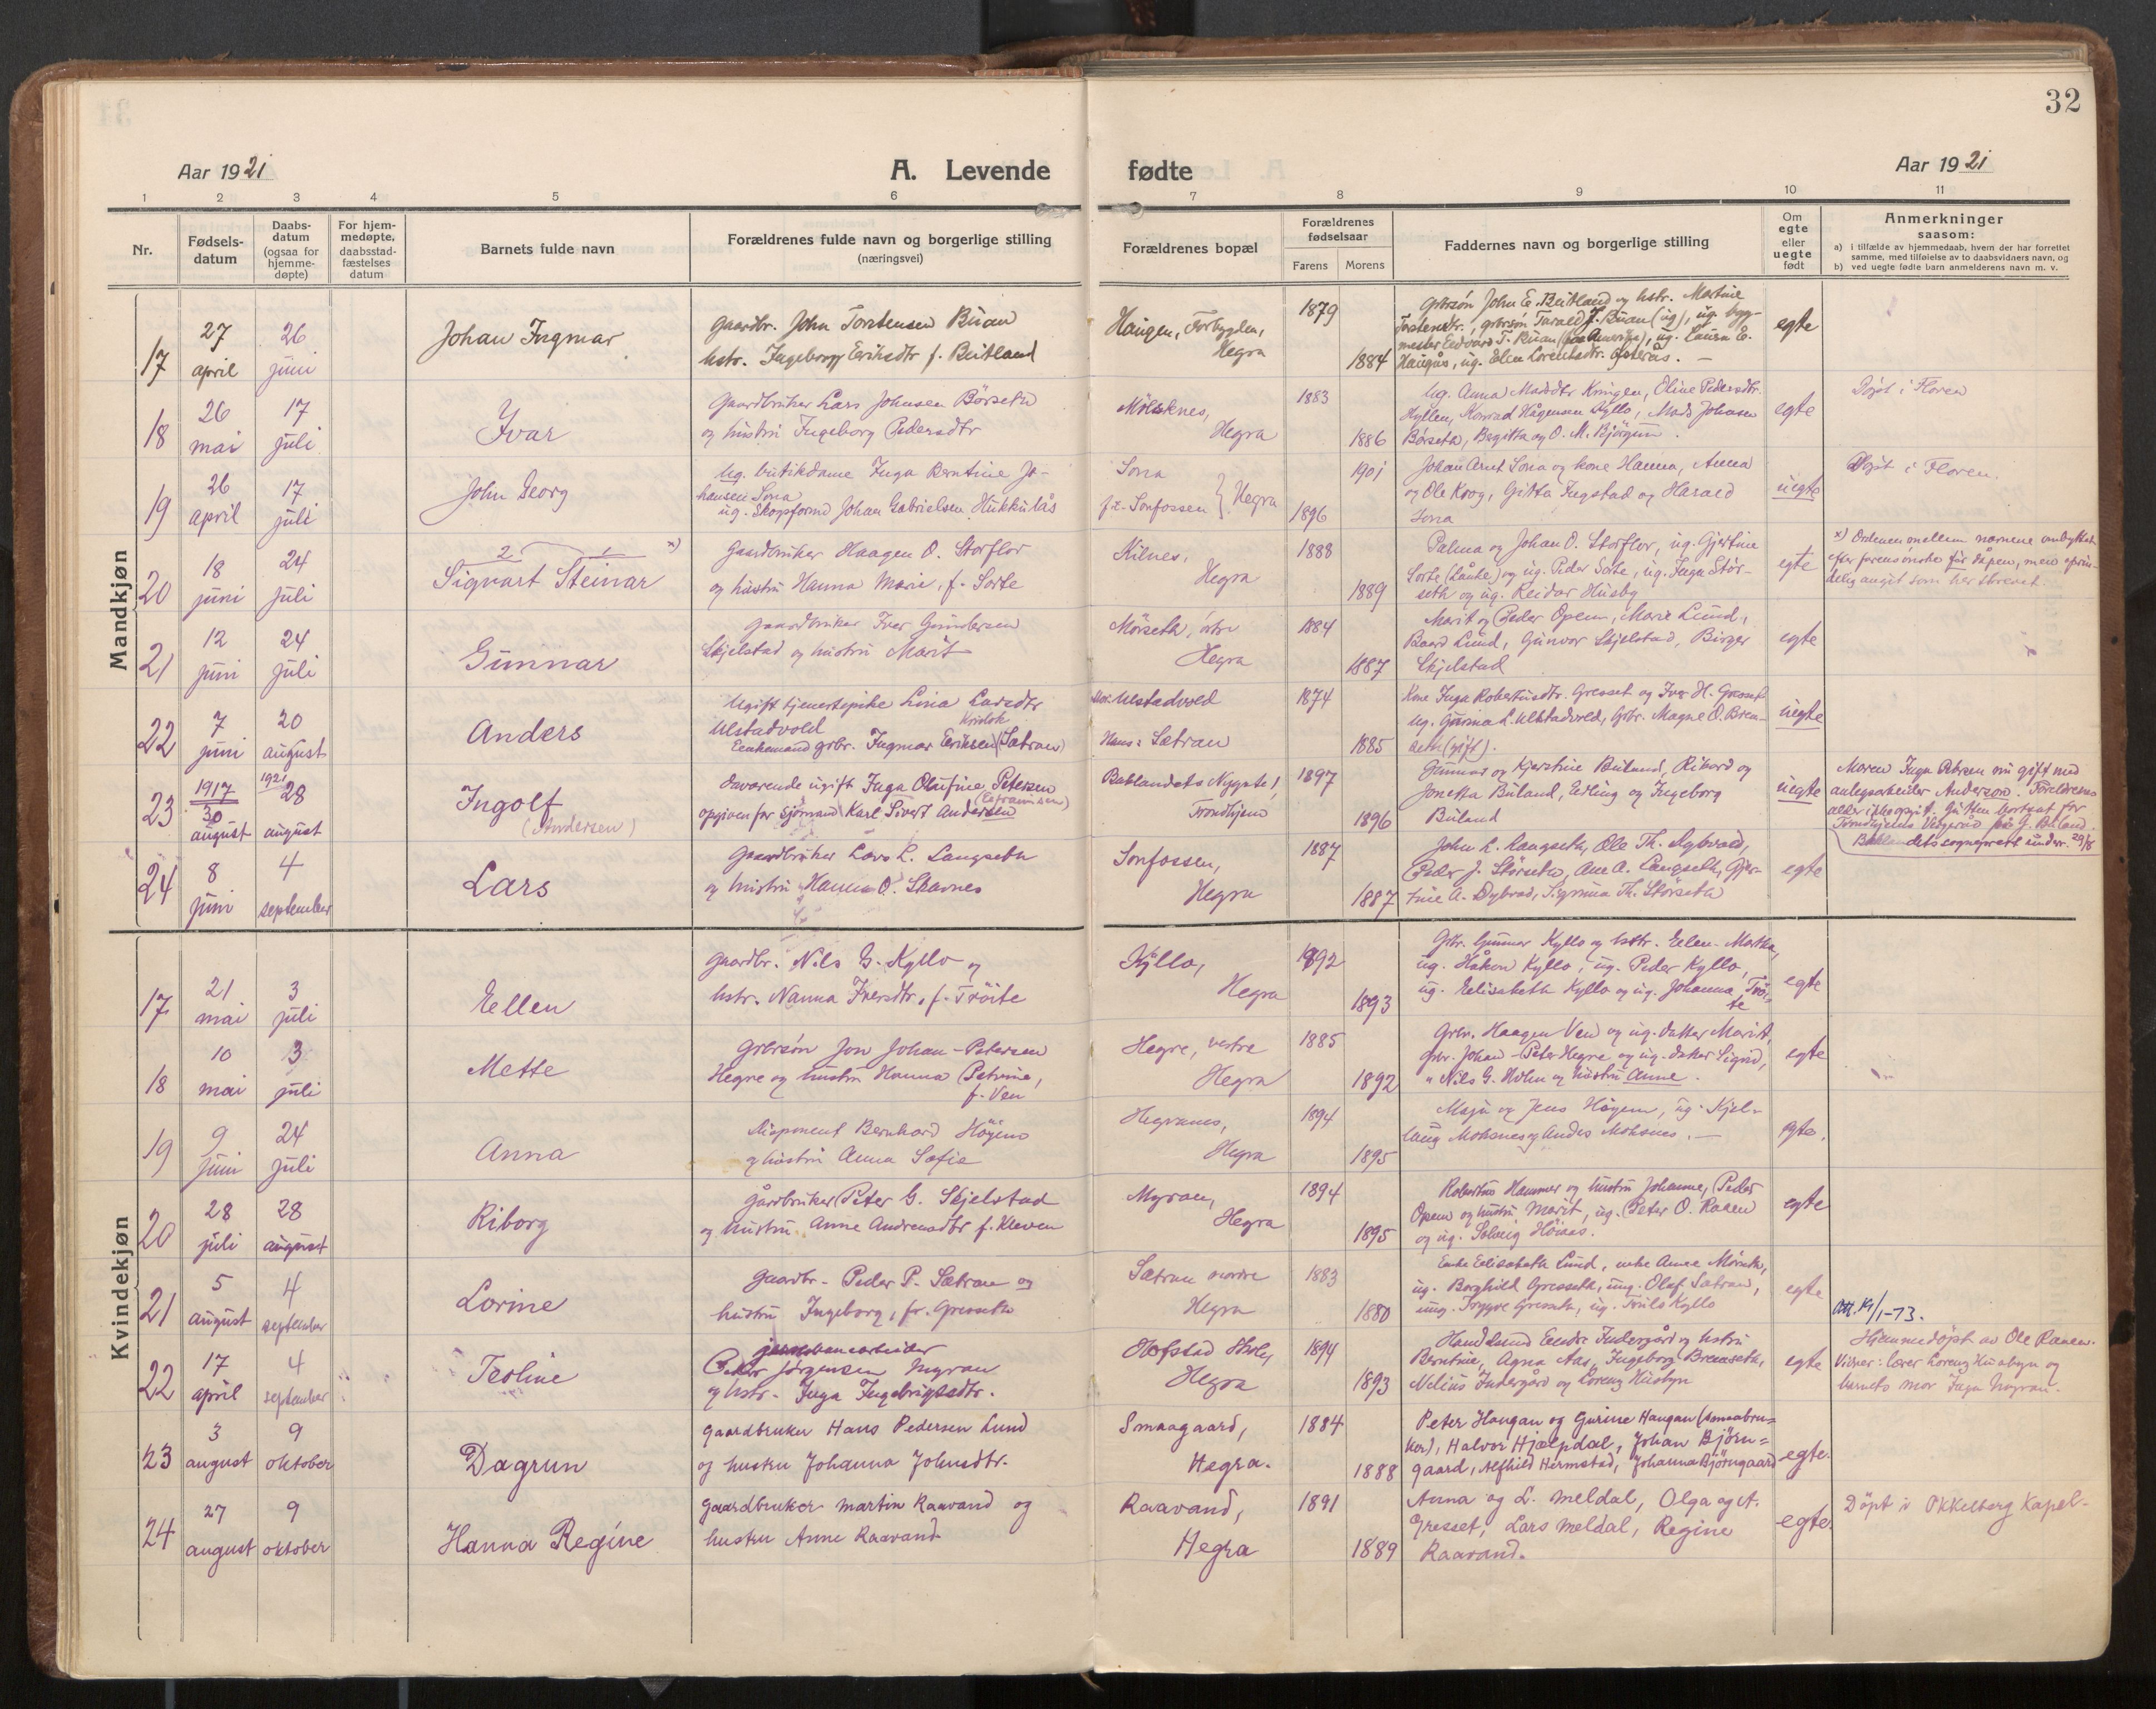 32
Aar 1921
A. Levende
fødte
Aar 1921
1 2 3 4 5 6 7 8 9 10 11
Nr.
Fødsels-
datum
Daabs-
datum
(ogsaa for
hjemme-
døpte)
For hjem-
medøpte,
daabsstad-
fæstelses
datum
Barnets fulde navn
Forældrenes fulde navn og borgerlige stilling
(næringsvei)
Forældrenes bopæl
Forældrenes
fødselsaar
Farens Morens
Faddernes navn og borgerlige stilling
Om
egte
eller
uegte
født
Anmerkninger
saasom:
a) i tilfælde av hjemmedaab, hvem der har forrettet
samme, med tilføielse av to daabsvidners navn, og
b) ved uegte fødte barn anmelderens navn m. v.
Mandkjøn
17
27
april
26
juni
Johan Ingmar
Gaardbr. John Torstensen Buan
hstr. Ingeborg Eriksdtr f. Beitland
Haugen, Forbygden,
Hegra
1879
1884
Grbrsøn John E. Beitland og hstr. Martine
Torstensdtr., grbrsøn Tarald T. Buan (ug), ug. byg-
mester Edvard T. Buan (fra Amerika), ug. Laura E.
Haugås, ug. Elen Lorentsdtr. Østerås. —
egte
18
26
mai
17
juli
Ivar
Gaardbruker Lars Johnsen Börseth
og hustru Ingeborg Pedersdtr
Moksnes,
Hegra
1883
1886
Ug. Anna Madsdtr Kringen, Oline Pedersdtr.
Hyllen, Konrad Hågensen Kyllo, Mads Johnsen
Börseth, Begitta og O. M. Bjørgum.
egte
Døpt i Floren
19
26
april
17
juli
John Georg
Ug. butikdame Inga Berntine Jo-
hansen Sona
ug. Skogformd Johan Gabrielsen Hukkulås
Sona
f.x. Sonfossen } Hegra
1901
1896
Johan Arnt Sona og kone Hanna, Anna
og Ole Krog, Gitta Ingstad og Harald
Sona
uegte
Døpt i Floren.
20
18
juni
24
juli
2 1 x)
Sigvart Steinar
Gaardbruker Haagen O. Storflor
og hustru Hanna Marie, f. Sorte
Kilnes,
Hegra
1888
1889
Palma og Johan O. Storflor, ug. Gjertine
Sorte (Lånke) og ug. Peder Sorte, ug. Inga Stor-
seth og ug. Reidar Husby
egte
x) Ordenen mellem navnene ombyttet
efter farens ønske før dåpen, men oprin-
delig angit som her skrevet.
21
12
juni
24
juli
Gunnar
Gaardbruker Iver Gundersen
Skjelstad og hustru Marit
Mörseth, østre
Hegra
1884
1887
Marit og Peder Opem, Marie Lund,
Baard Lund, Gunvor Skjelstad, Birger
Skjelstad
egte
22
7
juni
20
august
Anders
Ugift tjenestepike Lina Larsdtr
Ulstadvold
Enkemand grbr. Ingmar Eriksen (Sætran)
Ulstadvold
Hans: Sætran
1874
1885
Kone Inga Robertusdtr. Gresset og Iver H. Gresset
ug. Gurina L. Ulstadvold, Grbr. Magne O. Brem-
seth (gift).
uegte
23
1917
30
august
1921
28
august
Ingolf
(Andersen)
Davarende ugift Inga Olufine Petersen
(Efraimsen)
opgiven far sjømand Karl Sivert Andersen
Baklandets Nygate 1,
Trondhjem
1897
1896
Gunnar og Kjerstine Buland, Rikard og
Jonetta Buland, Erling og Ingeborg
Buland
uegte
Moren Inga Petersen nu gift med
anlegsarbeider Anderson. Foreldrenes
alder ikke opgit. Gutten bortsat for
Trondhjems Vergeråd på G. Buland.
Baklandets sogneprest underr. 29/8
24
8
juni
4
september
Lars
Gaardbruker Lars L. Langseth
og hustru Hanna O. Skavnes
Sonfossen,
Hegra
1887
1887
John L. Langseth, Ole Th. Dybvad,
Peder J. Størseth, Ane A. Langseth, Gjer-
tine A. Dybvad, Sigrunn Th. Størseth
egte
Kvindekjøn
17
21
mai
3
juli
Ellen
Gaardbr. Nils G. Kyllo og
hstr. Nanna Iversdtr. f. Tröite
Kyllo,
Hegra
1892
1893
Grbr. Gunnar Kyllo og hstr. Elen-Martha,
ug. Håkon Kyllo, ug. Peder Kyllo,
ug. Elisabeth Kyllo og ug. Johanna Trøi-
te
egte
18
10
mai
3
juli
Mette
Grbrsøn Jon Johan-Petersen
Hegre og hustru Hanna Petrine,
f. Ven
Hegre, vestre
Hegra
1885
1892
Grbr. Haagen Ven og ug. datter Marit,
Grbr. Johan-Peter Hegre og ug. datter Sigrid,
" Nils G. Holm og hustru Anne.
egte
19
9
juni
24
juli
Anna
Disponent Bernhard Högem
og hustru Anna Sofie
Hegramo,
Hegra
1894
1895
Maja og Jens Högem, ug. Kjel-
laug Moksnes og Anders Moksnes. —
egte.
20
28
juli
28
august
Riborg
Gårdbruker Peter G. Skjelstad
og hustru Anne Andreasdtr f. Kleven
Myran,
Hegra
1894
1895
Robertus Hammer og hustru Johanne, Peder
Opem og hustru Marit, ug. Peter O. Raaen
og ug. Solveig Höiaas.
egte
21
5
august
4
september
Lorine
Gaardbr. Peder P. Sætran og
hustru Ingeborg, fr. Gresseth
Sætran nordre
Hegra
1883
1880
Enke Elisabeth Lund, enke Anne Mörseth,
ug. Borghild Gresseth, ung. Olaf Sætran,
ung. Trygve Gresseth, ug. Troels Kyllo
egte
Att. 19/1-73.
22
17
april
4
september
Teoline
jernbanearbeider
Peter Jørgensen Myran
og hstr. Inga Ingebrigtsdtr.
Hofstad Skole,
Hegra
1894
1893
Handelsmd Endre Indergård og hstru
Berntine, Agna Aas, Ingeborg Bremseth,
Nelius Indergård og Lorenz Husbyn
egte
Hjemmedøpt av Ole Raaen.
Vidner: lærer Lorenz Husbyn og
barnets mor Inga Myran.
23
3
august
9
oktober
Dagrun
Gaardbruker Hans Pedersen Lund
og hustru Johanna Johnsdtr.
Smaagaard,
Hegra.
1884
1888
Peter Haugan og Gurine Haugan (smaabru=
ker), Halvor Hjælpdal, Johan Bjørn=
gaard, Alfhild Hermstad, Johanna Bjørngaard
egte.
24
27
august
9
oktober
Hanna Regine
Gaardbruker Martin Raavand og
hustru Anne Raavand
Raavand,
Hegra
1891
1889
Anna og L. Meldal, Olga og A.
Gresset, Lars Meldal, Regine
Raavand.
egte.
Döpt i Okkelborg Kapel.